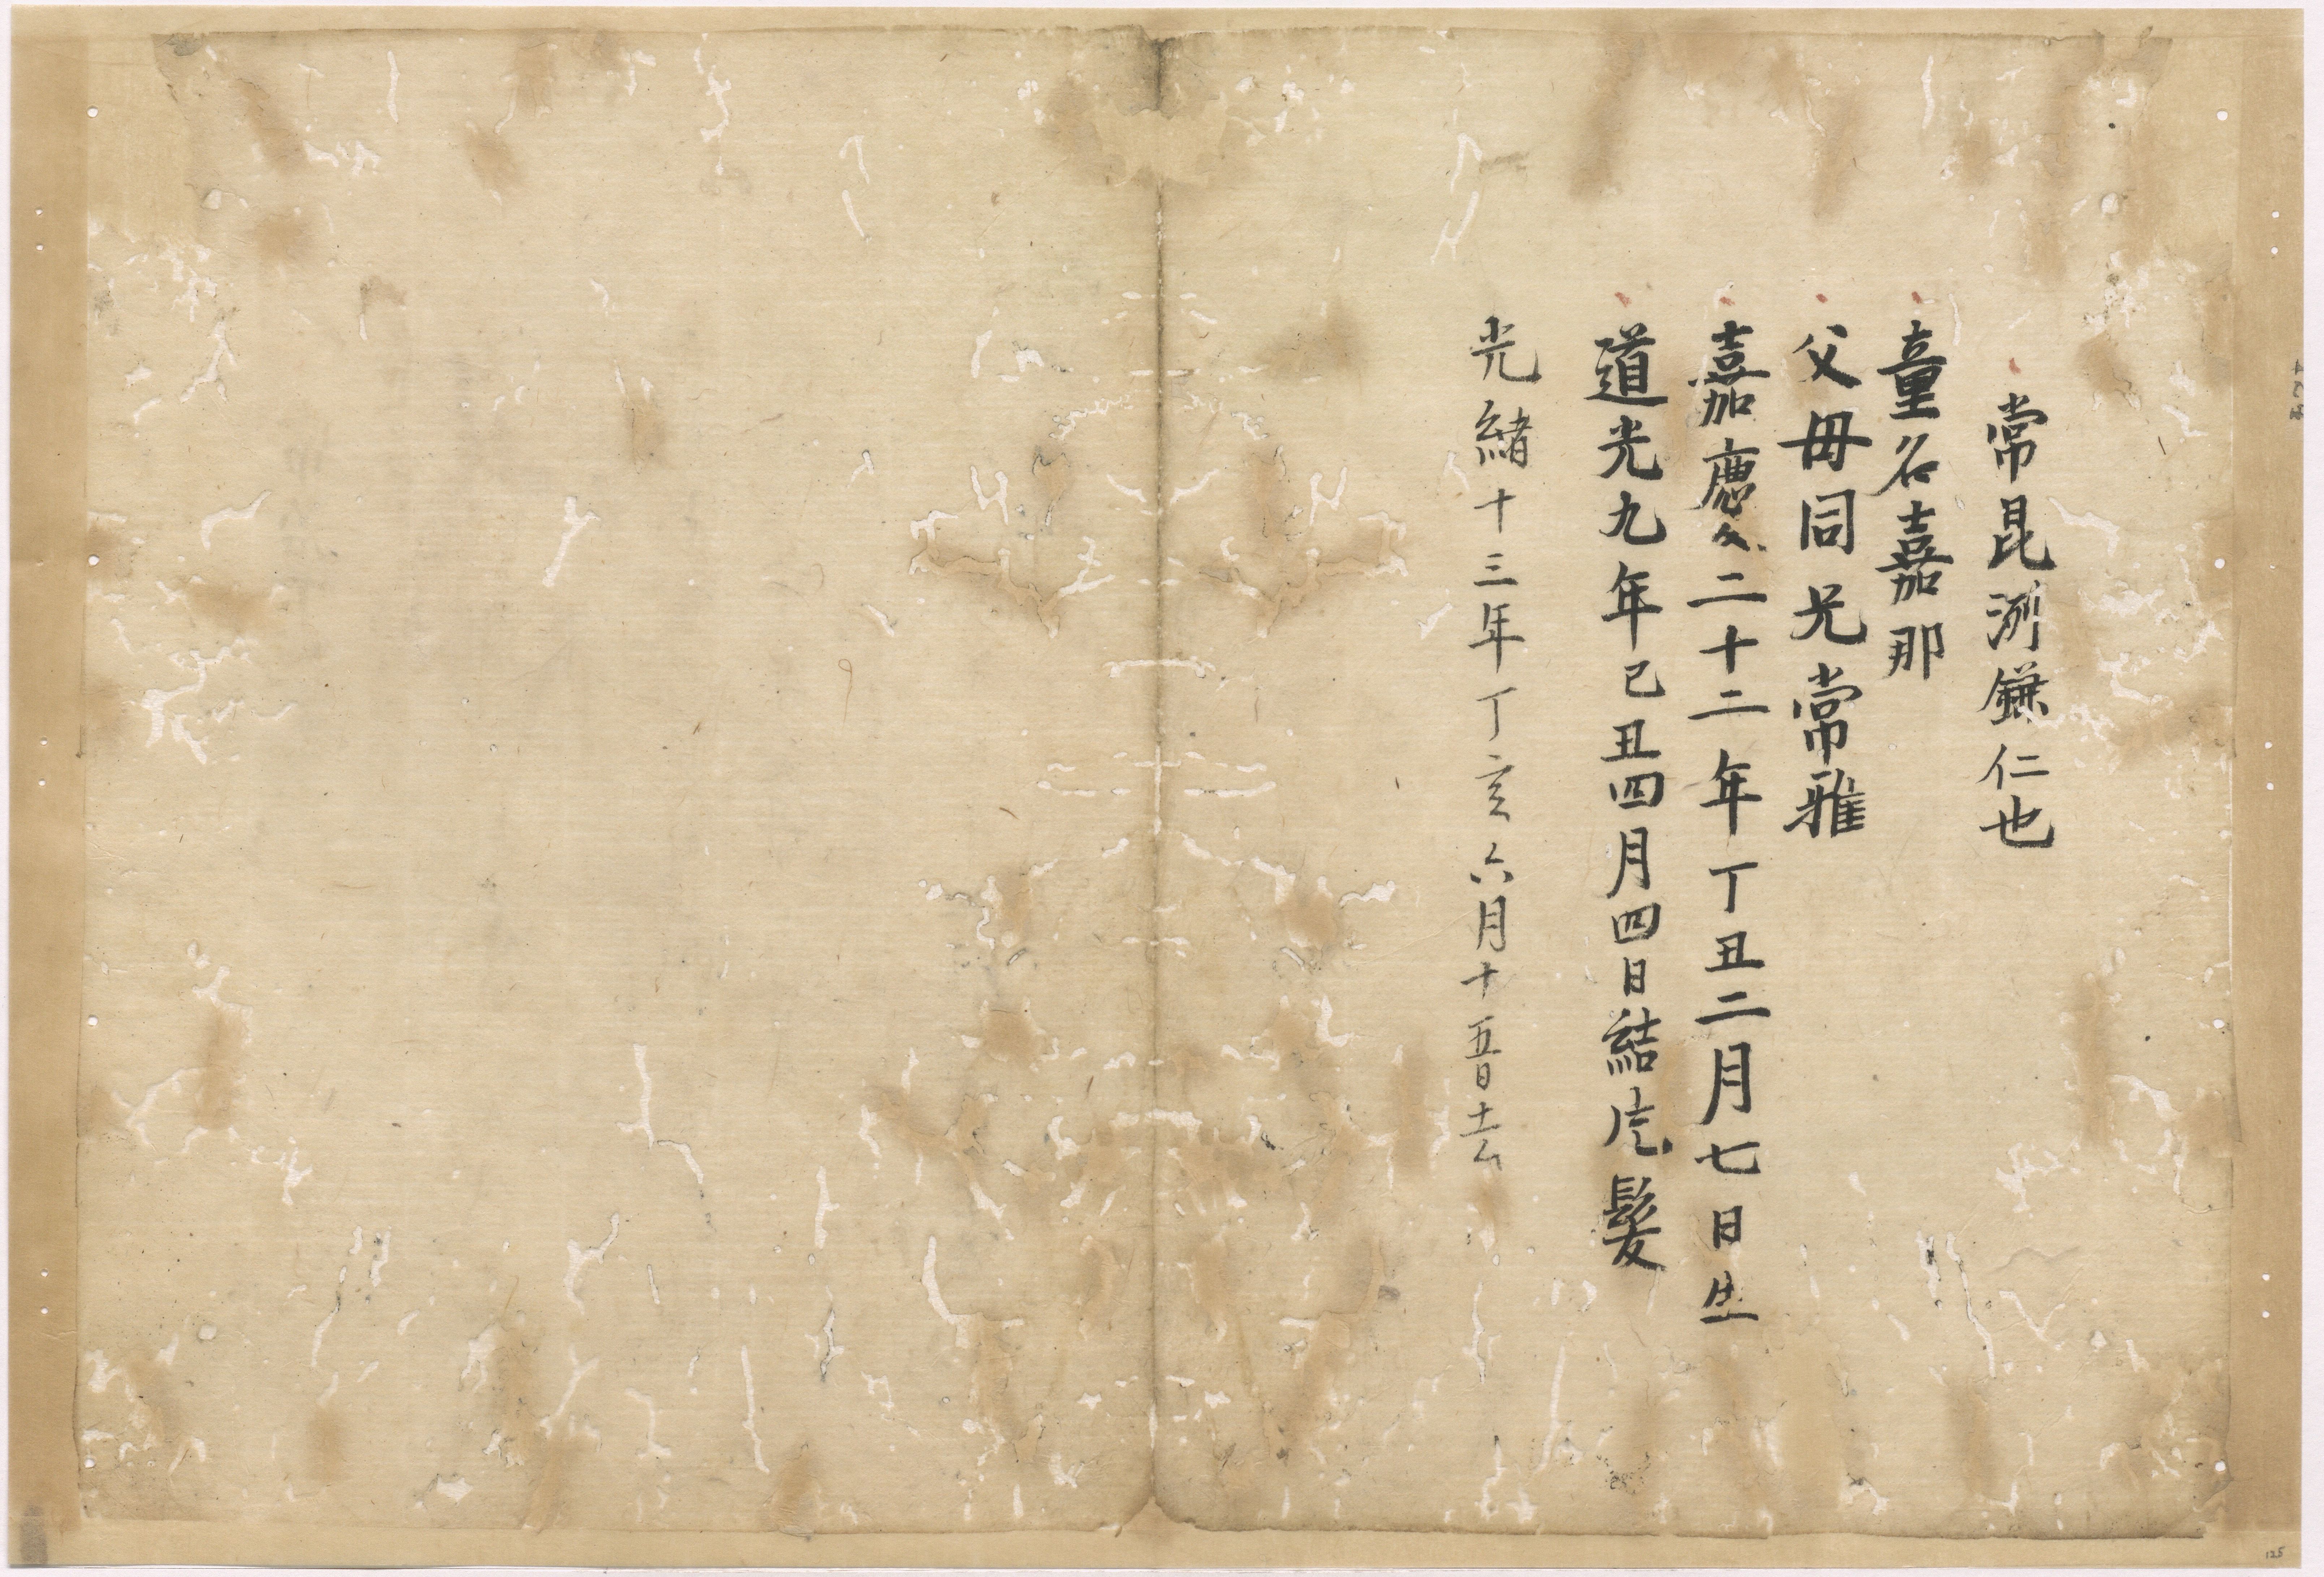 常昆浰鎌仁也
童名嘉那
父母同兄常雅
嘉慶二十二年丁丑二月七日生
道光九年己丑四月四日結髮
光緒十三年丁亥六月十五日去
125